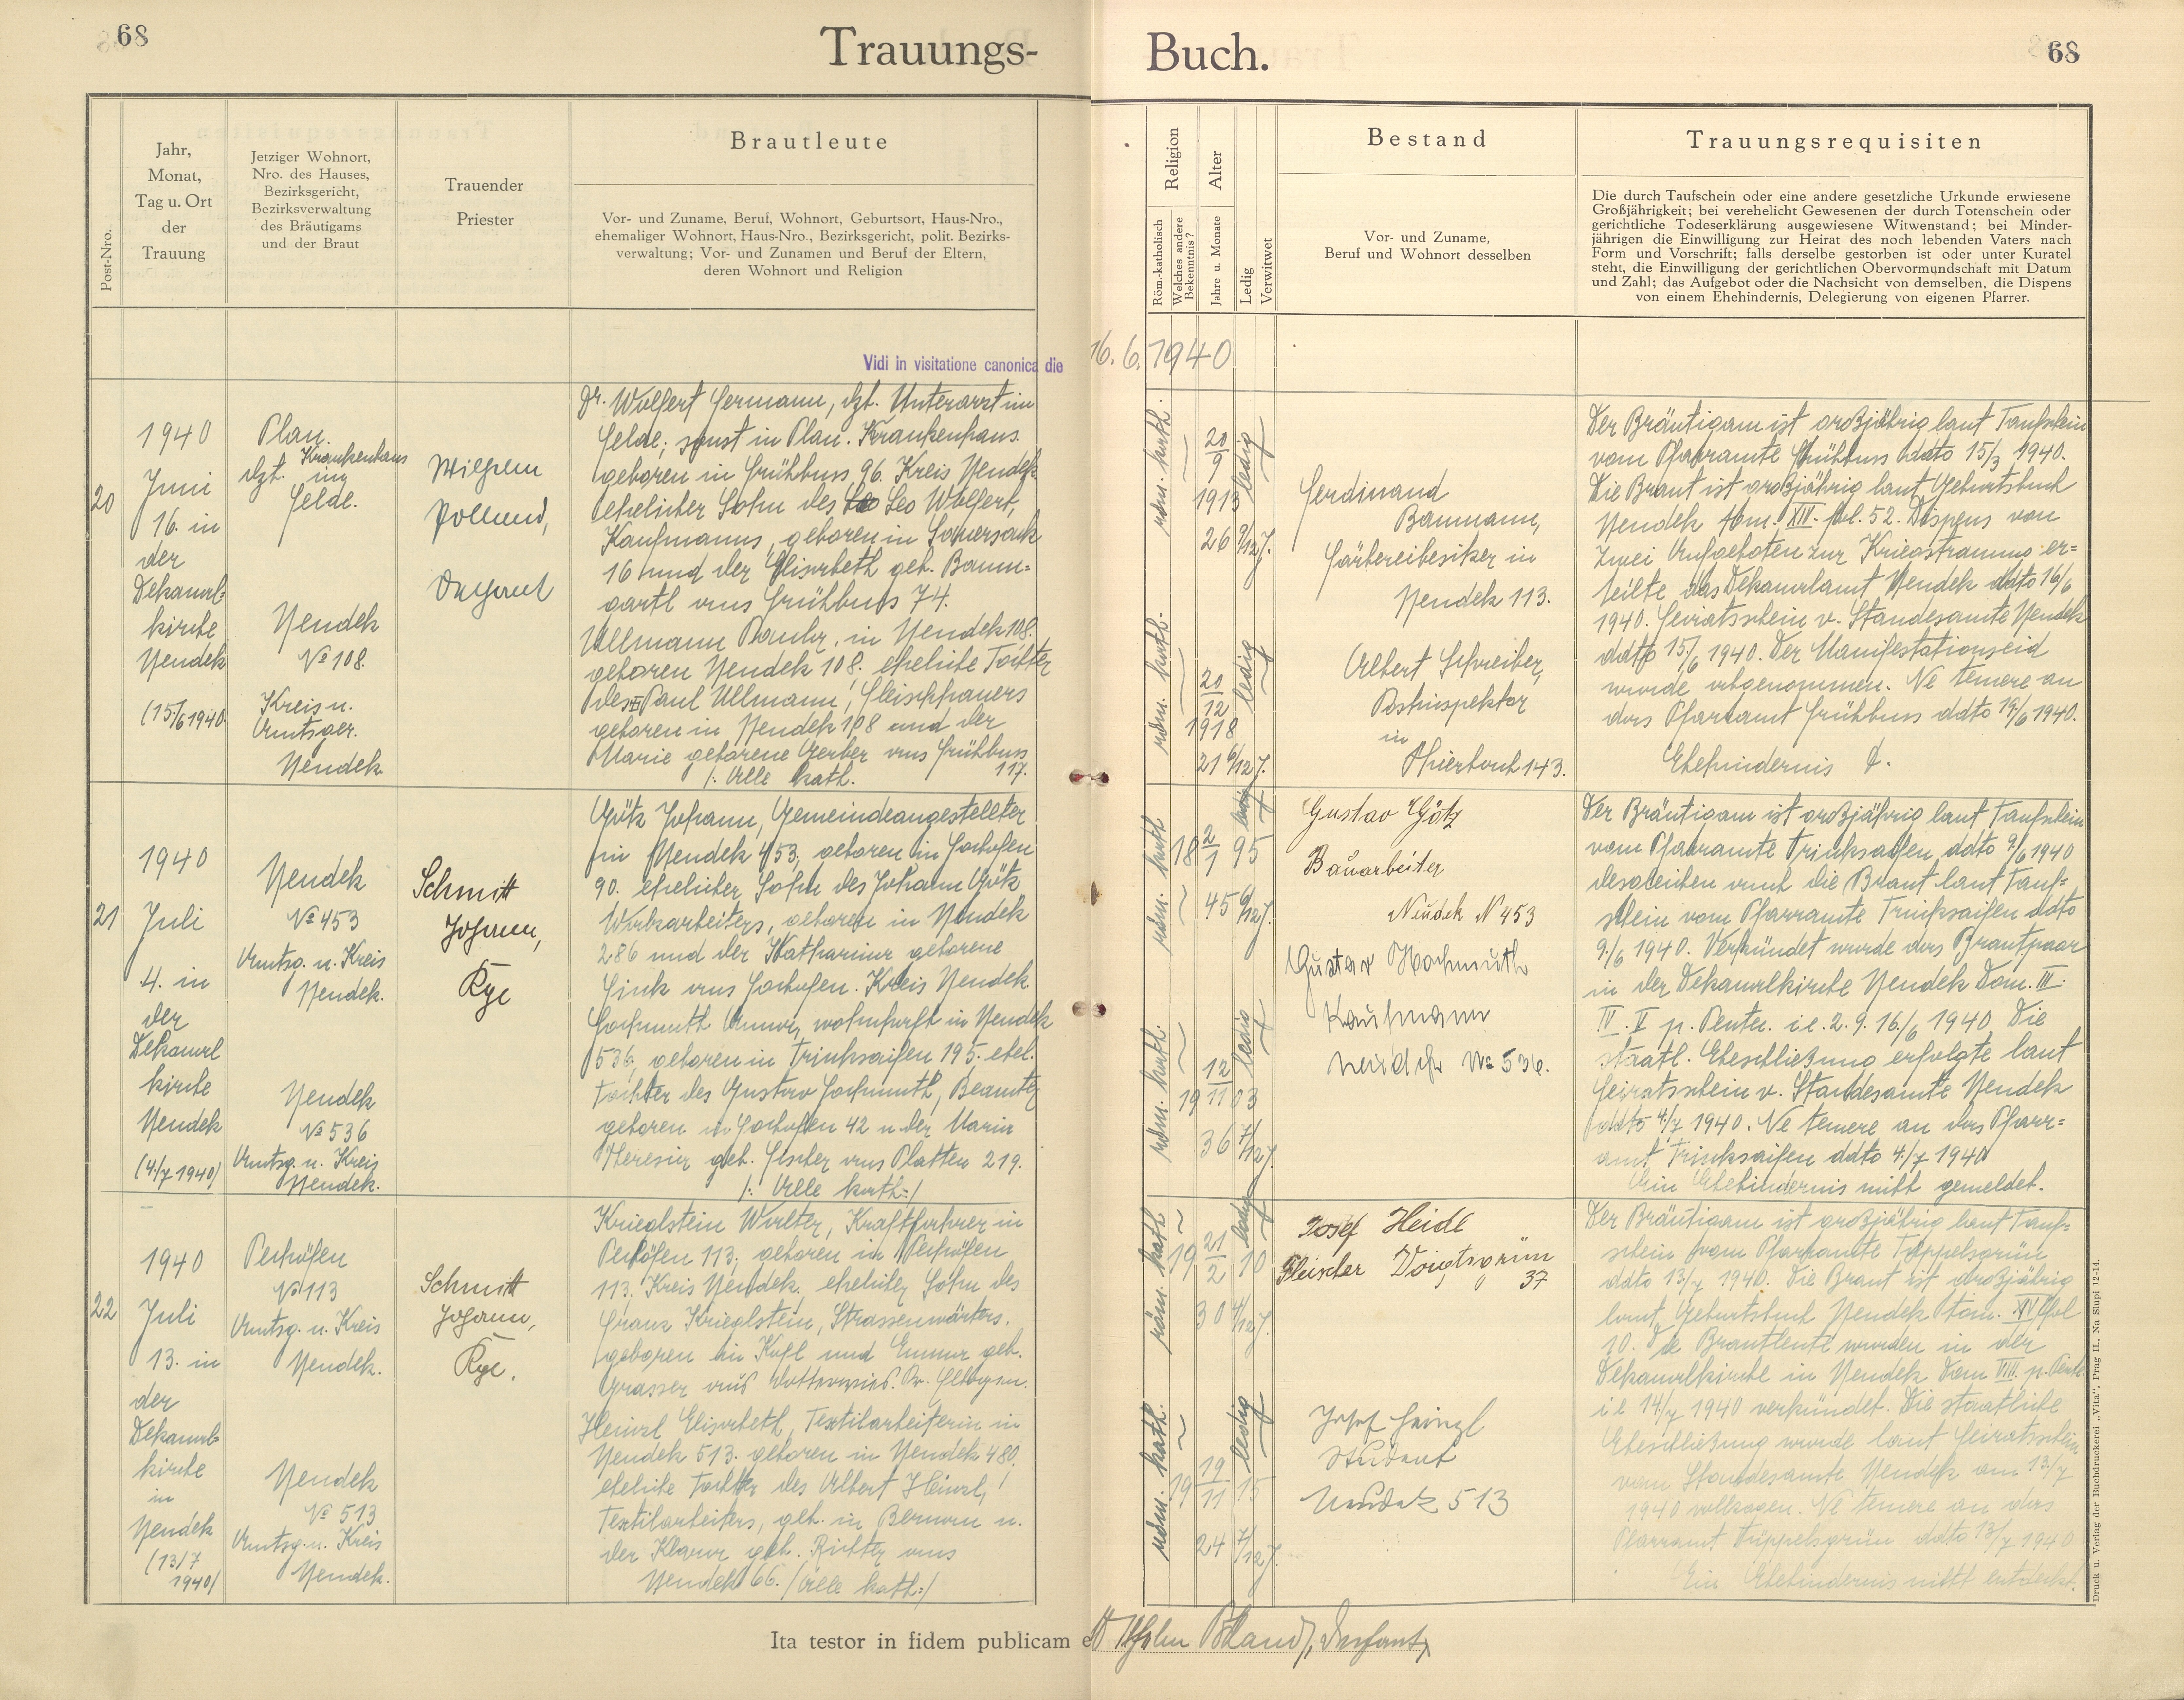 68
Trauungs-
Buch.
68
Post-Nro.
Jahr,
Monat,
Tag u. Ort
der
Trauung
Jetziger Wohnort,
Nro. des Hauses,
Bezirksgericht,
Bezirksverwaltung
des Bräutigams
und der Braut
Trauender
Priester
Brautleute
Vor- und Zuname, Beruf, Wohnort, Geburtsort, Haus-Nro.,
ehemaliger Wohnort, Haus-Nro., Bezirksgericht, polit. Bezirks-
verwaltung; Vor- und Zunamen und Beruf der Eltern,
deren Wohnort und Religion
Religion
Röm.-katholisch
Welches andere
Bekenntnis?
Alter
Jahre u. Monate
Ledig
Verwitwet
Bestand
Vor- und Zuname,
Beruf und Wohnort desselben
Trauungsrequisiten
Die durch Taufschein oder eine andere gesetzliche Urkunde erwiesene
Großjährigkeit; bei verehelicht Gewesenen der durch Totenschein oder
gerichtliche Todeserklärung ausgewiesene Witwenstand; bei Minder-
jährigen die Einwilligung zur Heirat des noch lebenden Vaters nach
Form und Vorschrift; falls derselbe gestorben ist oder unter Kuratel
steht, die Einwilligung der gerichtlichen Obervormundschaft mit Datum
und Zahl; das Aufgebot oder die Nachsicht von demselben, die Dispens
von einem Ehehindernis, Delegierung von eigenen Pfarrer.
Vidi in visitatione canonica die 16. 6. 1940
20
1940
Juni
16. in
der
Dekanal-
kirche
Neudek
(15./6 1940.
Plan.
Krankenhaus
dzt. im
Felde.
Neudek
No 108.
Kreis u.
Amtsger.
Neudek
Wilhelm
Polland,
Dechant
Dr. Wolfert Hermann, dzt. Unterarzt im
Felde; sonst in Plan. Krankenhaus.
geboren in Frühbuss 96. Kreis Neudek
ehelicher Sohn des Leo Wolfert,
Kaufmanns, geboren in Sauersack
16 und der Elisabeth geb. Baum-
gartl aus Frühbuss 74.
Ullmann Paula, in Neudek 108.
geboren Neudek 108. eheliche Tochter
des Paul Ullmann, Fleischhauers
geboren in Neudek 108 und der
Marie geborene Gerber aus Frühbuss
117.
/: Alle kath.
röm. kath.
20
9
1913
26 9/12 J.
ledig
röm. kath.
20
12
1918
21 6/12 J.
ledig
Ferdinand
Baumann,
Färbereibesitzer in
Neudek 113.
Albert Schreiber,
Postinspektor
in
143.
Der Bräutigam ist großjährig laut Taufschein
vom Pfarramte Frühbuss ddto 15/3 1940.
Die Braut ist großjährig laut Geburtsbuch
Neudek tom. XIV. fol. 52. Dispens von
zwei Aufgeboten zur Kriegstrauung er-
teilte das Dekanalamt Neudek ddto 16/6
1940. Heiratsschein v. Standesamte Neudek
ddto 15./6 1940. Der Manifestationseid
wurde abgenommen. Ne temere an
das Pfarramt Frühbuss ddto 19/6 1940.
Ehehindernis
21
1940
Juli
4. in
der
Dekanal
kirche
Neudek
(4/7 1940)
Neudek
No 453
Amtsg. u. Kreis
Neudek.
Neudek
No 536
Amtsg. u. Kreis
Neudek.
Schmitt
Johann,
Götz Johann, Gemeindeangestellter
in Neudek 453, geboren in Hochofen
90. ehelicher Sohn des Johann Götz
Werksarbeiters, geboren in Neudek
286 und der Katharina geborene
Fink aus Hochofen. Kreis Neudek
Hochmuth Anna, wohnhaft in Neudek
536, geboren in Trinksaifen 195. ehel.
Tochter des Gustav Hochmuth, Beamter
geboren in Hochofen 42 u. der Maria
Theresia geb. Fischer aus Platten 219.
/: Alle kath:/
röm. kath
18 2/1 95
45 6/12 J.
ledig
röm. kath.
12
19 11 03
36 7/12 J.
ledig
Gustav Götz
Bauarbeiter
Neudek N 453
Gustav Hochmuth
Kaufmann
Neudek No 536.
Der Bräutigam ist großjährig laut Taufschein
vom Pfarramte Trinksaifen ddto 9./6 1940
desgleichen auch die Braut laut Tauf-
schein vom Pfarramte Trinksaifen ddto
9./6 1940. Verkündet wurde das Brautpaar
in der Dekanalkirche Neudek Dom. III.
IV. V p. Pentec. i.e. 2. 9. 16./6 1940. Die
staatl. Eheschließung erfolgte laut
Heiratsschein v. Standesamte Neudek
ddto 4/7 1940. Ne temere an das Pfarr-
amt Trinksaifen ddto 4./7 1940
Ein Ehehindernis nicht gemeldet.
22
1940
Juli
13. in
der
Dekanal-
kirche
in
Neudek
(13/7
1940)
No 113
Amtsg. u. Kreis
Neudek.
Neudek
No 513
Amtsg. u. Kreis
Neudek.
Schmitt
Johann,
Krieglstein Walter, Kraftfahrer in
113, geboren in
113. Kreis Neudek, ehelicher Sohn des
Franz Krieglstein, Strassenwärters,
geboren in Kohl und Emma geb.
Grasser aus
Heinzl Elisabeth, Textilarbeiterin in
Neudek 513. geboren in Neudek 480
eheliche Tochter des Albert Heinzl,
Textilarbeiters, geb. in Bernau u.
der Klara geb. Richter aus
Neudek 66. /Alle kath:/
röm. kath
21
19 2 10
30 4/12 J.
ledig
röm. kath.
19
19 11 15
24 7/12 J.
ledig
Josef Heidl
Fleischer Voigtsgrün
37
Josef Heinzl
Student
Neudek 513
Der Bräutigam ist großjährig laut Tauf-
schein vom Pfarramte Tüppelsgrün
ddto 13/7 1940. Die Braut ist großjährig
laut Geburtsbuch Neudek tom. XIV fol
10. Die Brautleute wurden in der
Dekanalkirche in Neudek Dom VIII. p. Pent.
i.e 14/7 1940 verkündet. Die staatliche
Eheschließung wurde laut Heiratsschein
vom Standesamte Neudek am 13/7
1940 vollzogen. Ne temere an das
Pfarramt Tüppelsgrün ddto 13/7 1940
Ein Ehehindernis nicht entdeckt.
Ita testor in fidem publicam et Wilhelm Polland, Dechant
Druck u. Verlag der Buchdruckerei „Vita", Prag II., Na Slupi 12-14.